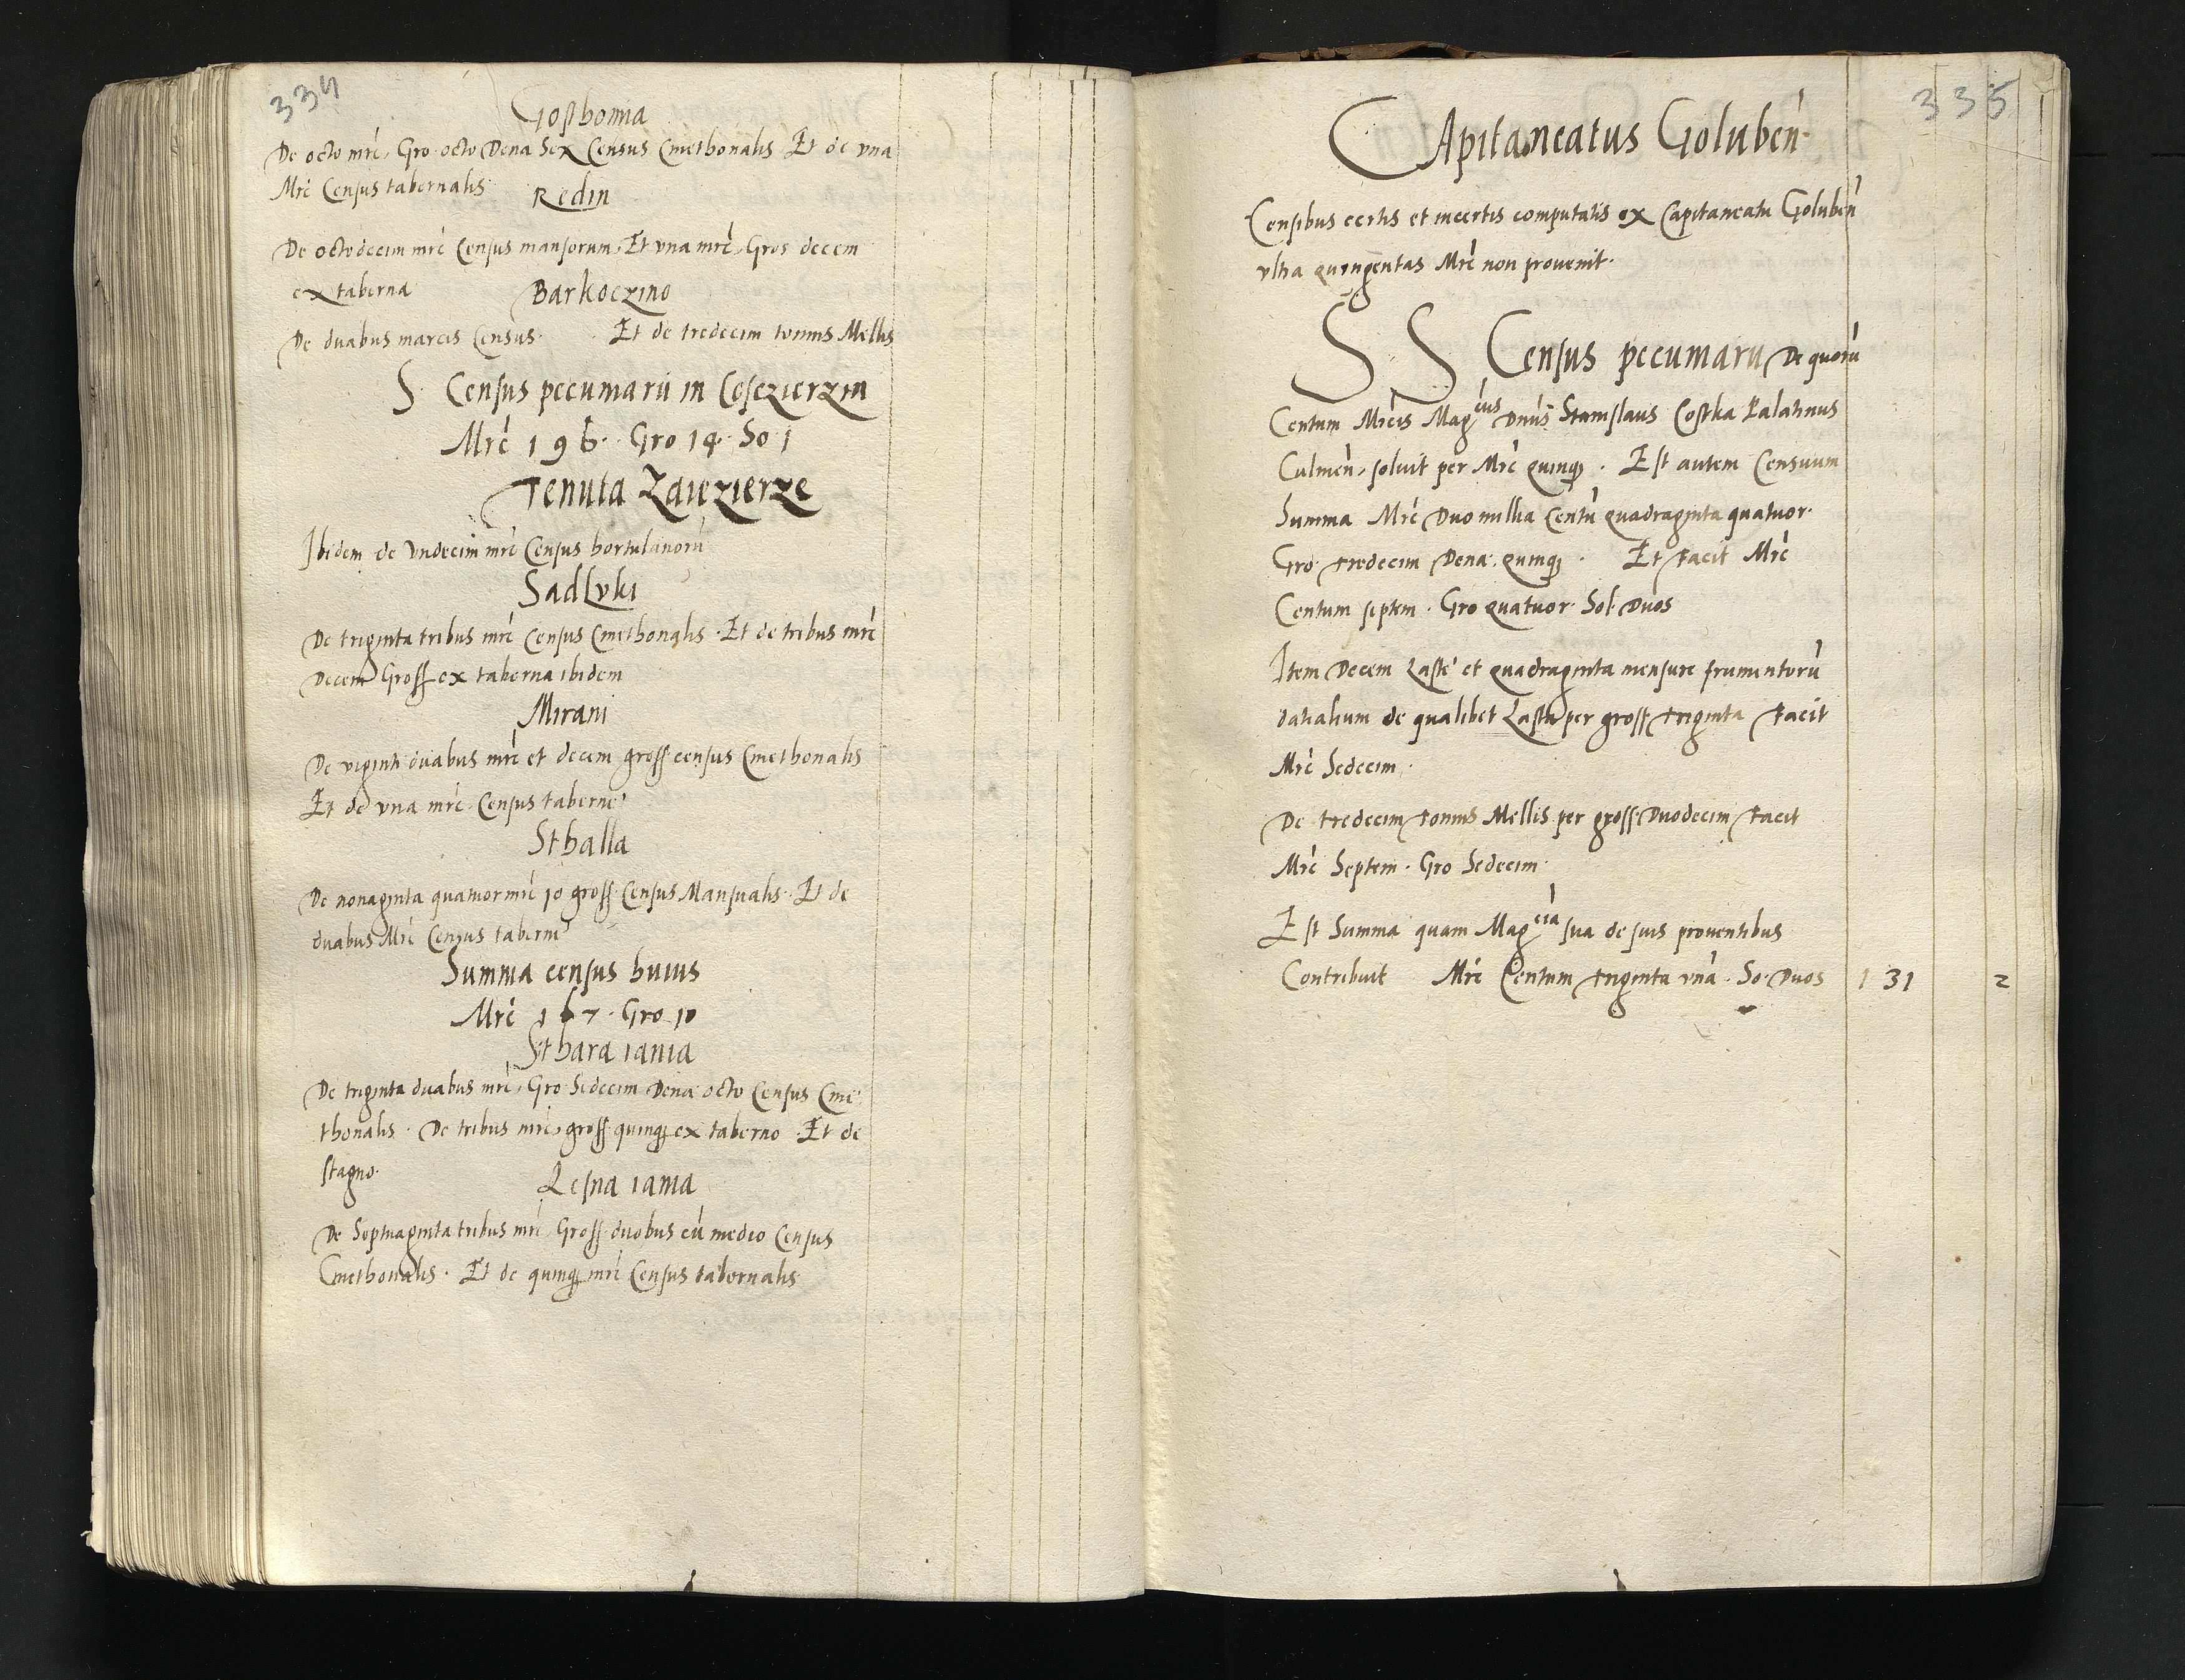 334
Gosthomia
De octo mrc̃, Gro octo Dena Sex Census Cmethonalis Et de vna
Mrc̃ Census tabernalis
Redin
De octodecim mrc̃ Census mansorum, Et vna mrc̃, Gros decem
ex taberna
Barkoczino
De duabus marcis Census. Et de tredecim tonnis Mellis
S. Census pecuniarii in Cosczierzin
Mrc̃ 196. Gro 14. So 1
Tenuta
Ibidem de vndecim mrc̃ Census hortulanorũ
Sadlvki
De triginta tribus mrc̃ Census Cmethonalis. Et de tribus mrc̃
Decem Gross ex taberna ibidem
Mirani
De viginti duabus mrc̃ et decem gross census Cmethonalis
Et de vna mrc̃. Census taberne
Sthalla
De nonaginta quatuor mrc̃ 10 gross Census Mansualis. Et de
duabus Mrc̃ Census taberne
Summa census huius
Mrc̃ 167. Gro 10
Sthara iania
De triginta duabus mrc̃, Gro Sedecim Dena octo Census Cme
thonalis. De tribus mrc̃, gross quinqȝ ex taberno. Et de
stagno.
Lesna iania
De Septuaginta tribus mrc̃ Gross duobus cũ medio Census
Cmethonalis. Et de quinqȝ mrc̃ Census tabernalis
335
CApitaneatus Goluben̄
Censibus certis et incertis computatis ex Capitaneatu Goluben̄
vltra quingentas Mrc̃ non prouenit.
S S Census pecuniarii De quorũ
Centum Mrcis Magcus Dnũs Stanislaus Costka Palatinus
Culmen̄, soluit per Mrc̃ quinqȝ. Est autem Censuum
Summa Mrc̃ Duo millia Centũ quadraginta quatuor.
Gro tredecim Dena. quinqȝ. Et facit Mrc̃
Centum septem. Gro quatuor. Sol. Duos
Item Decem Laste et quadraginta mensure frumentorũ
datialium de qualibet Lasta per gross triginta facit
Mrc̃ Sedecim.
De tredecim tonnis Mellis per gross Duodecim facit
Mrc̃ Septem. Gro Sedecim.
Est Summa quam Magcia sua de suis prouentibus
Contribuit Mrc̃ Centum triginta vna. So. Duos 131 2